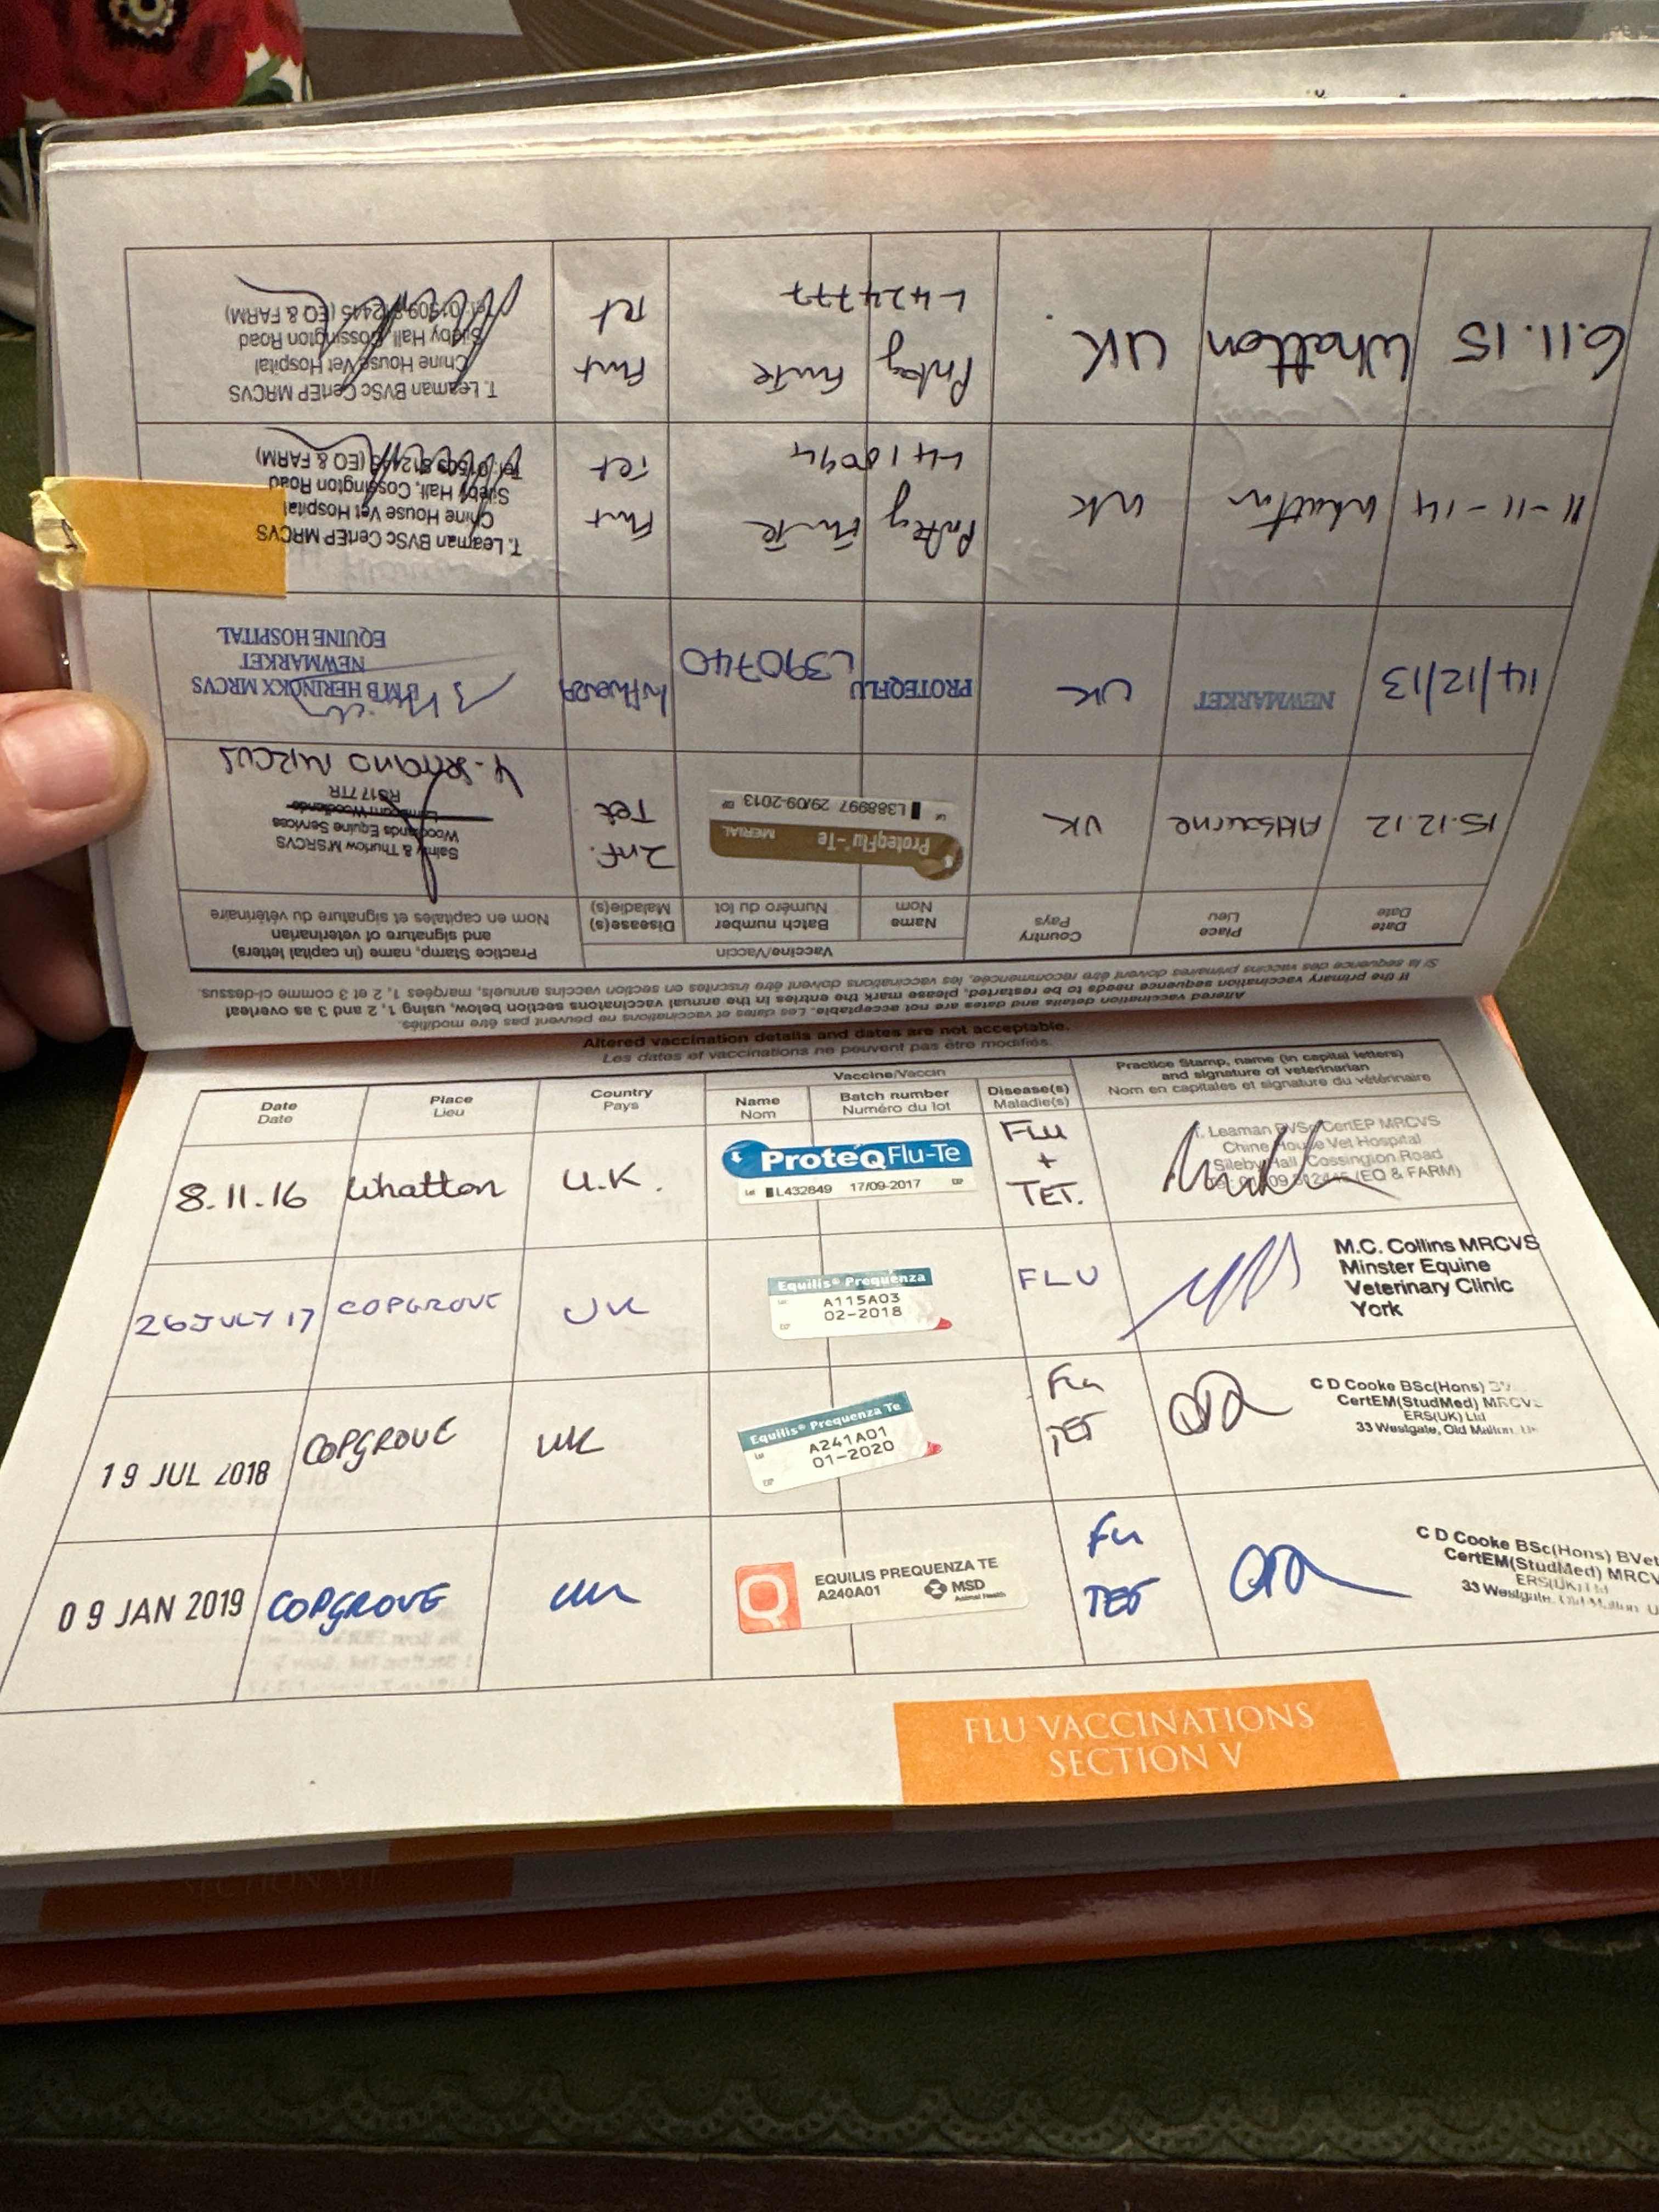 Altered vaccination details and dates are not acceptable. Les dates et vaccinations ne peuvent pas être modifiés.
If the primary vaccination sequence needs to be restarted, please mark the entries in the annual vaccinations section below, using 1, 2 and 3 as overleaf
Si la sequence des vaccins primaires doivent être recommencée, les vaccinations doivent être inscrites en section vaccins annuels, margées 1, 2 et 3 comme ci-dessus.
Date
Date
Place
Lieu
Country
Pays
Vaccine/Vaccin
Name
Nom
Batch number
Numéro du lot
Disease(s)
Maladie(s)
Practice Stamp, name (in capital letters)
and signature of veterinarian
Nom en capitales et signature du vétérinaire
15.12.12
UK
ProteqFlu-Te
MERIAL
L388997 29/09-2013
Inf.
Tet
Sainty & Thurlow M'SRCVS
Woodlands Equine Services
Lambourn Woodlands
RG17 7TR
MRCVS
14/12/13
NEWMARKET
UK
PROTEQFLU
L390740
Influenza
BMB HERINCKX MRCVS
NEWMARKET
EQUINE HOSPITAL
11-11-14
Whatton
UK
L418094
Tet
T. Leaman BVSc CertEP MRCVS
Chine House Vet Hospital
Sileby Hall, Cossington Road
Tel: 01509 812445 (EQ & FARM)
6.11.15
Whatton
UK.
L424777
Tet
T. Leaman BVSc CertEP MRCVS
Chine House Vet Hospital
Sileby Hall, Cossington Road
Tel: 01509 812445 (EQ & FARM)
Altered vaccination details and dates are not acceptable.
Les dates et vaccinations ne peuvent pas être modifiés.
Date
Date
Place
Lieu
Country
Pays
Vaccine/Vaccin
Name
Nom
Batch number
Numéro du lot
Disease(s)
Maladie(s)
Practice Stamp, name (in capital letters)
and signature of veterinarian
Nom en capitales et signature du vétérinaire
8.11.16
Whatton
U.K.
ProteqFlu-Te
Lot L432849 17/09-2017 EXP
FLU
+
TET.
T. Leaman BVSc CertEP MRCVS
Chine House Vet Hospital
Sileby Hall, Cossington Road
Tel: 01509 812445 (EQ & FARM)
26 JULY 17
COPGROVE
UK
Equilis® Prequenza
Lot A115A03
EXP 02-2018
FLU
M.C. Collins MRCVS
Minster Equine
Veterinary Clinic
York
19 JUL 2018
COPGROVE
UK
Equilis® Prequenza Te
Lot A241A01
EXP 01-2020
Flu
TET
C D Cooke BSc(Hons)
CertEM(StudMed) MRCVS
ERS(UK) Ltd
33 Westgate, Old Malton
09 JAN 2019
COPGROVE
UK
Q
EQUILIS PREQUENZA TE
A240A01
MSD
Animal Health
Flu
TET
C D Cooke BSc(Hons) BVet
CertEM(StudMed) MRCV
ERS(UK) Ltd
33 Westgate, Old Malton
FLU VACCINATIONS
SECTION V
SECTION VII